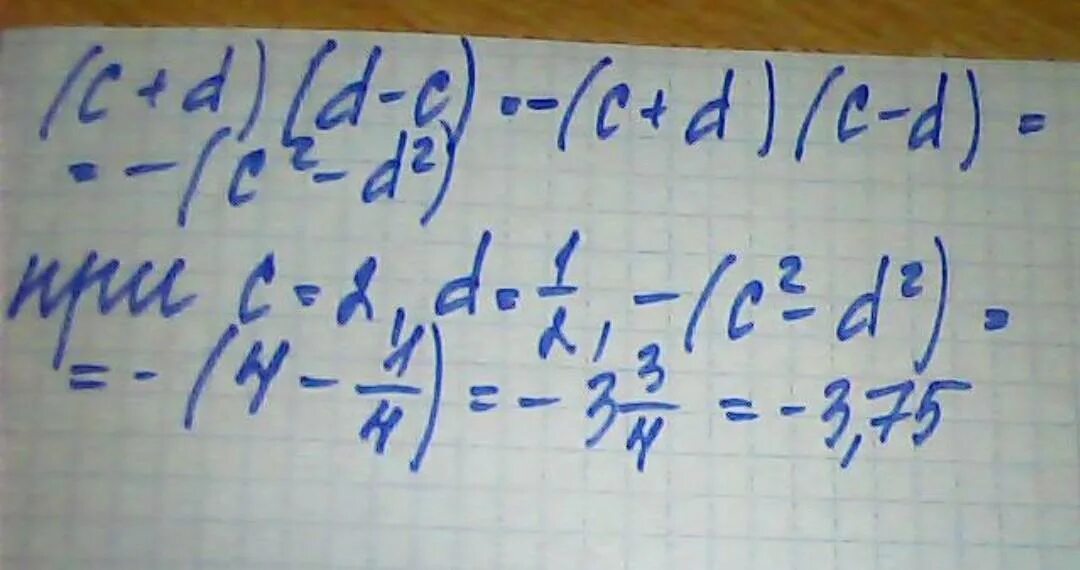 (c+d)(d-c) = -(c+d)(c-d) =
= -(c²-d²)
при c=2, d=1/2, -(c²-d²) =
= -(4 - 1/4) = -3 3/4 = -3,75